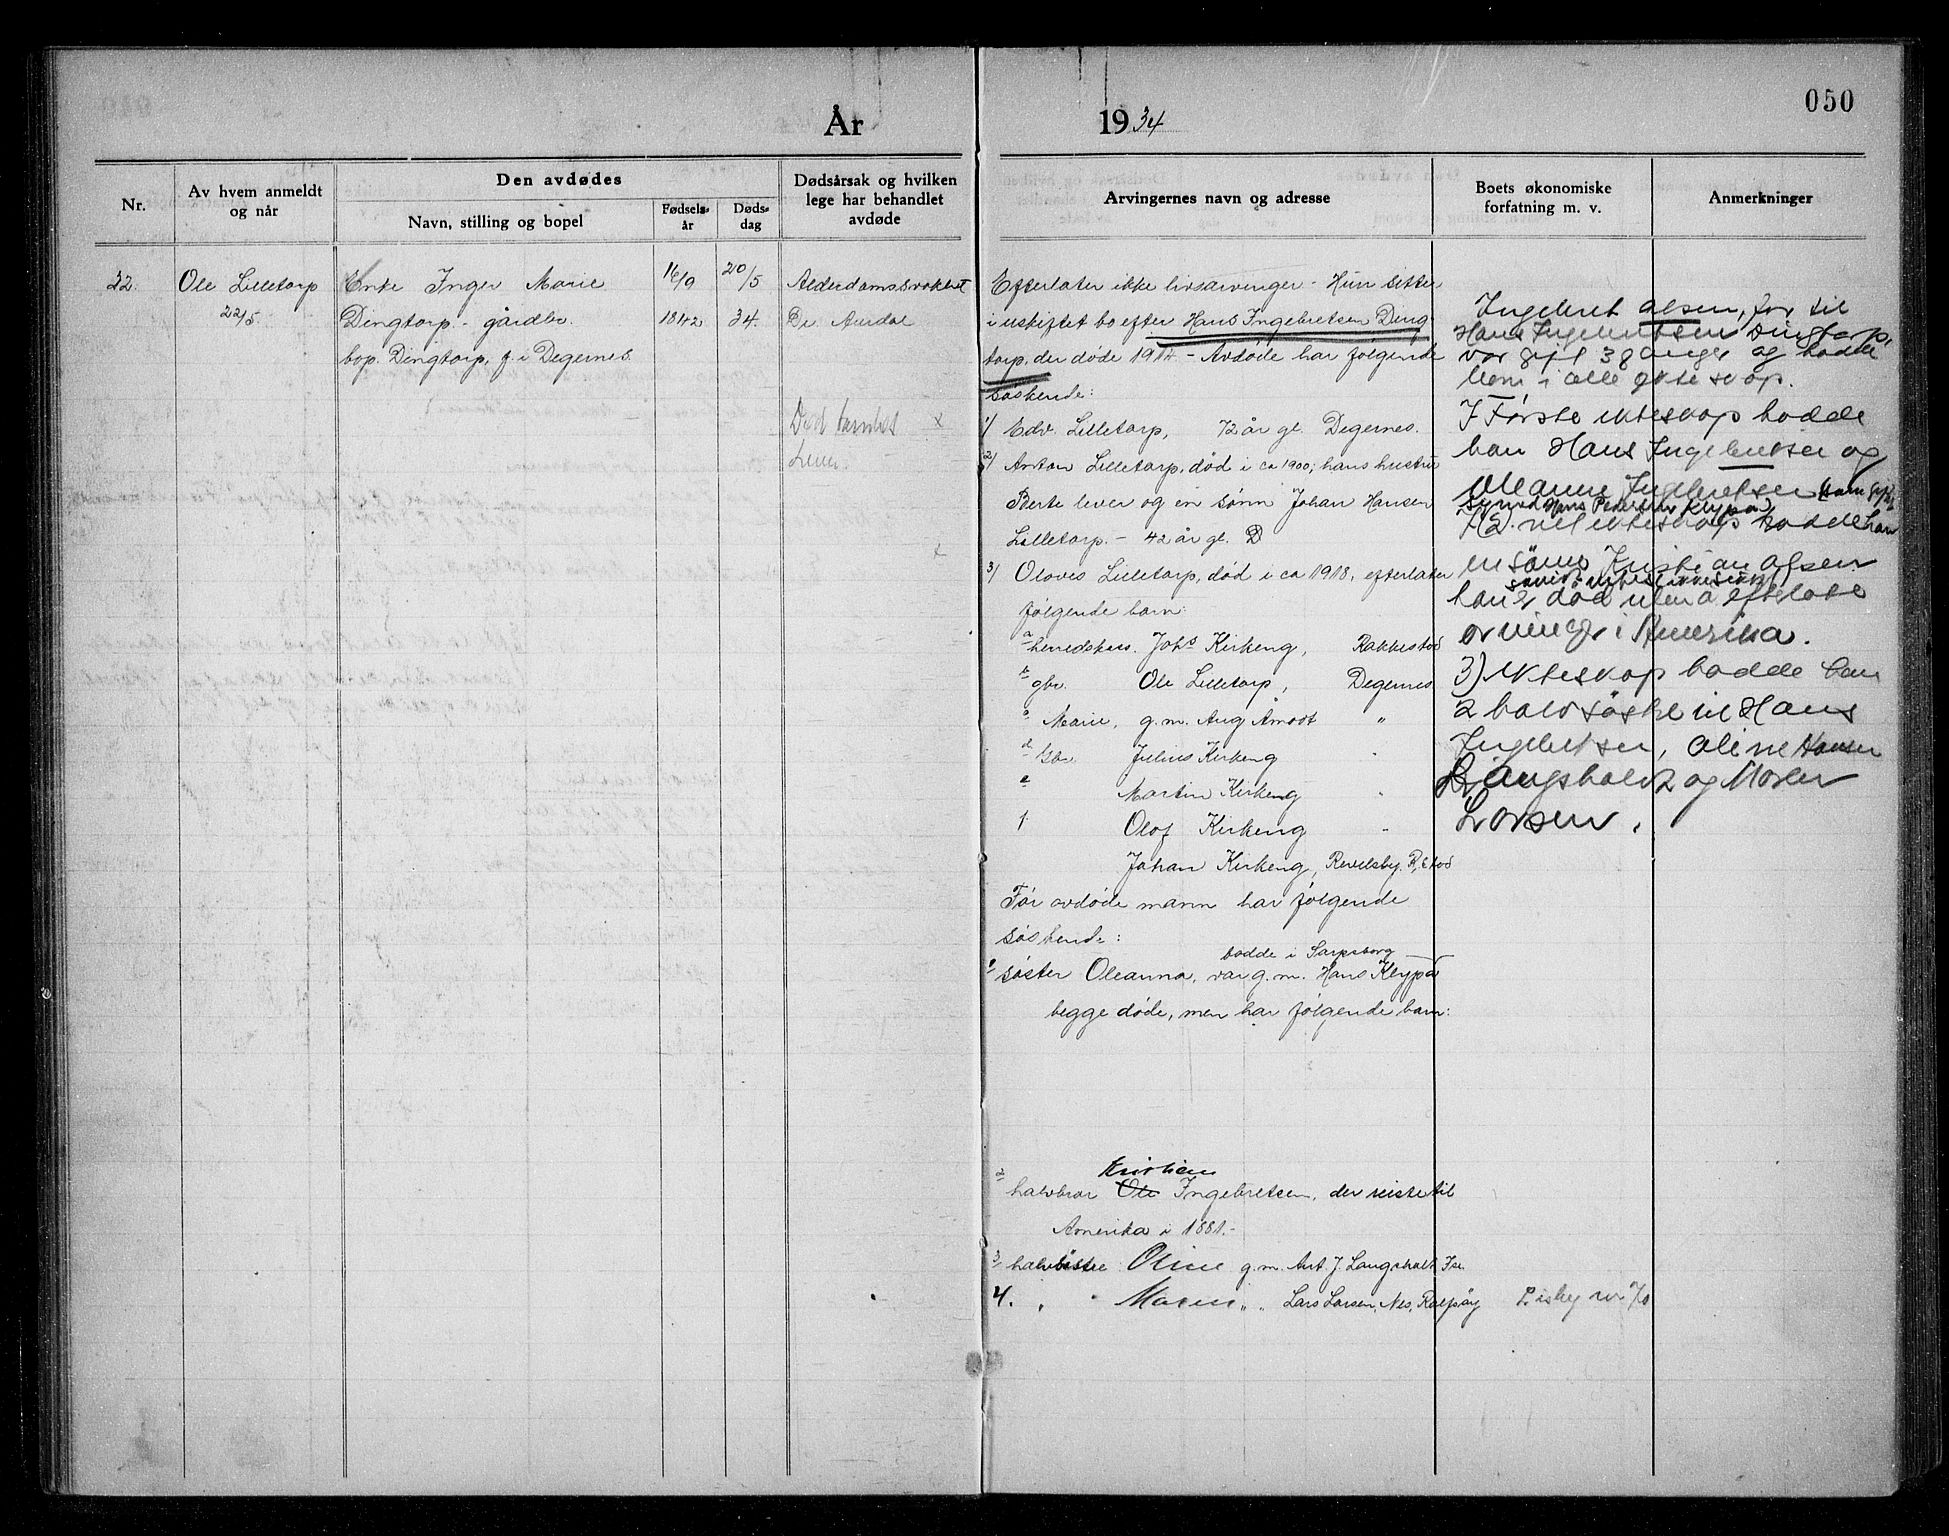 050
År 1934
Nr.
Av hvem anmeldt og når
Den avdødes
Navn, stilling og bopel
Fødsels-år
Døds-dag
Dødsårsak og hvilken lege har behandlet avdøde
Arvingernes navn og adresse
Boets økonomiske forfatning m. v.
Anmerkninger
32.
Ole Lilletorp
22/5.
Enke Inger Marie
Dingtorp - gårdbr.
bop. Dingtorp, f i Degernes.
16/9
1842
20/5
34.
Alderdomssvakhet
Dr. Aurdal
Død barnløs x
Efterlater ikke livsarvinger - Hun sitter
i uskiftet bo efter Hans Ingebretsen Ding-
torp, der døde 1914 - Avdøde har følgende
søskende:
1/ Edv. Lilletorp, 72 år gl. Degernes.
2/ Anton Lilletorp, død i ca 1900; hans hustru
Berte lever og en sønn Johan Hansen
Lilletorp. - 42 år gl. D
3/ Oloves Lilletorp, død i ca 1918, efterlater
følgende barn:
a herredskass. Johs Kirkeng, Rakkestad
b gbr. Ole Lilletorp, Degernes
c Marie, g.m. Aug Åmodt "
d Gbr. Julius Kirkeng "
e Martin Kirkeng "
f Olof Kirkeng "
Johan Kirkeng, Revelsby. R,stad
Før avdøde mann har følgende
søskende:
bodde i Sarpsborg
1/ søster Oleanna, var g.m. Hans Klypa
begge døde, men har følgende barn:
Kristian
2 halvbror Ole Ingebretsen, der reiste til
Amerika i 1881.-
3/ halvsøstre Oline g.m. Ant. J. Langsholt Ise.
4. " " Maren " " Lars Larsen, Nes,
Ingebret Olsen, far til
Hans Ingebretsen Dingtorp,
var gift 3 ganger og hadde
barn i alle ekteskap.
I Første ekteskap hadde
han Hans Ingebretsen og
Oleanne Ingebretsen
Hans Pedersen Klypa)
ekteskap hadde han
en sønn Kristian Olsen
han er død uten å efterlate
arvinger i Amerika.
3) ekteskap hadde han
2 halvsøske til Hans
Ingebretsen, Oline Hansen
Langsholt og Maren
Larsen.